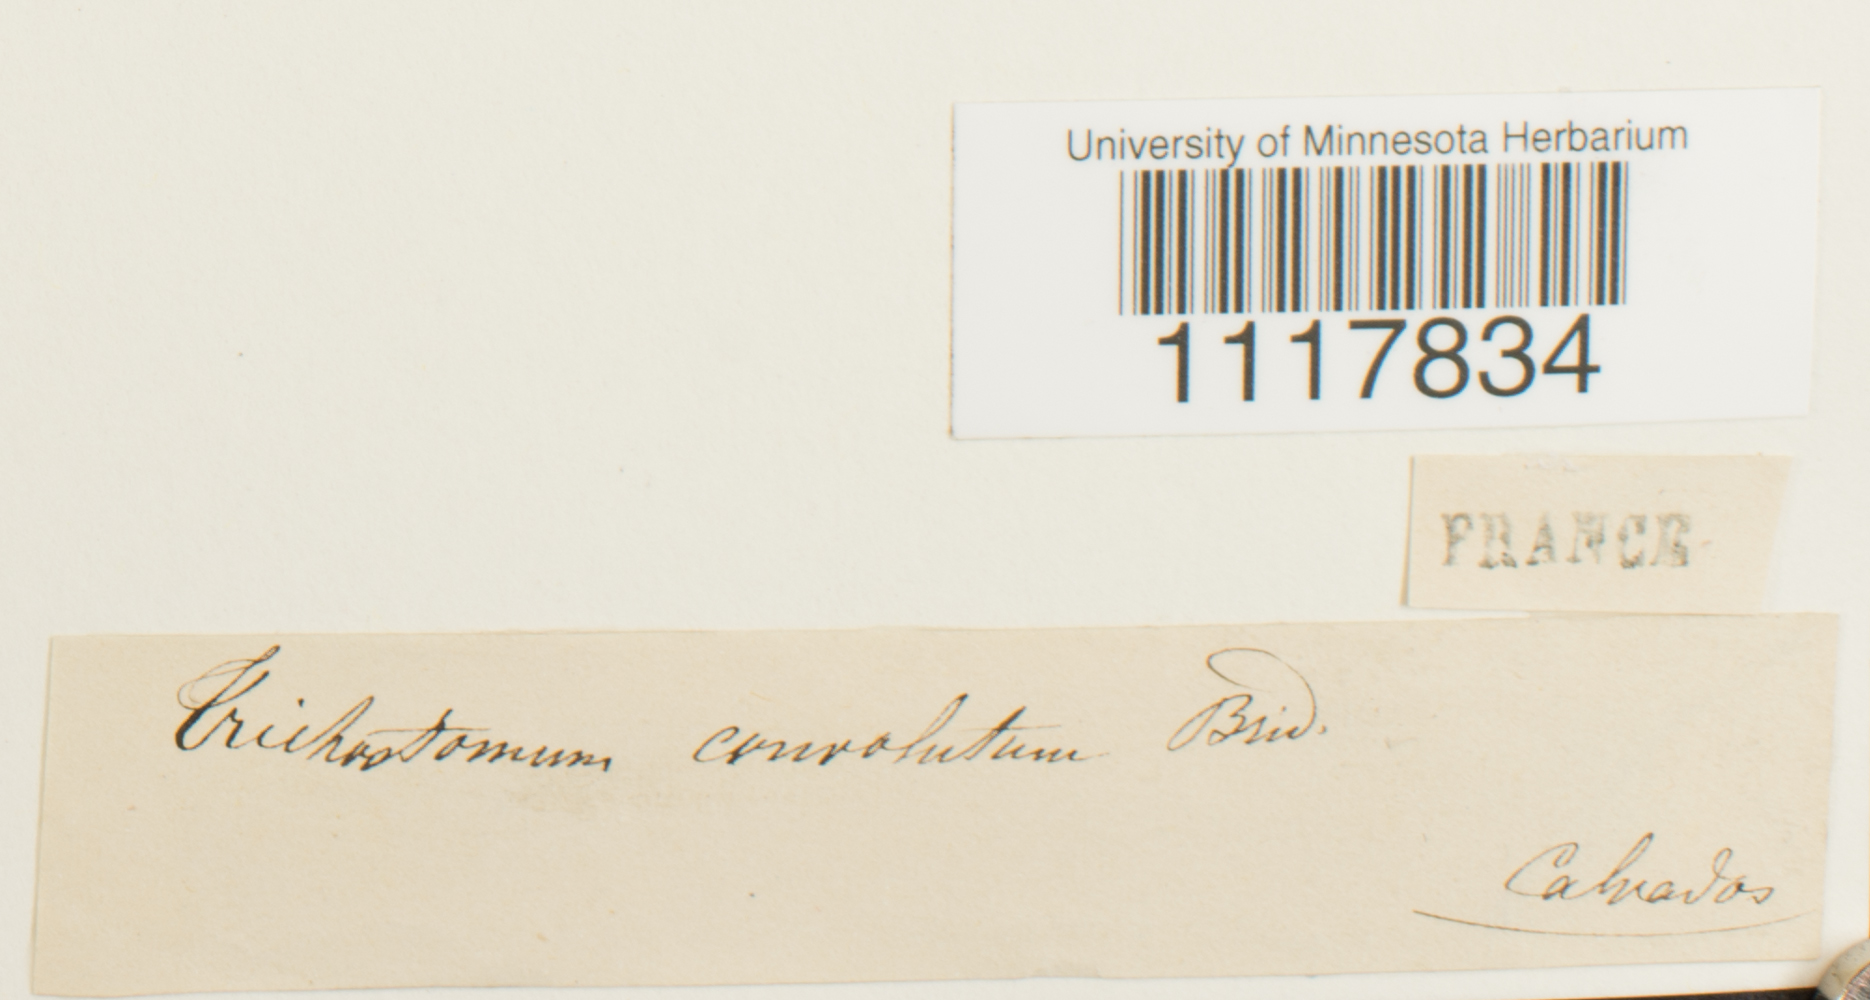 University of Minnesota Herbarium
1117834
FRANCE
Trichostomum convolutum Brid.
Calvados